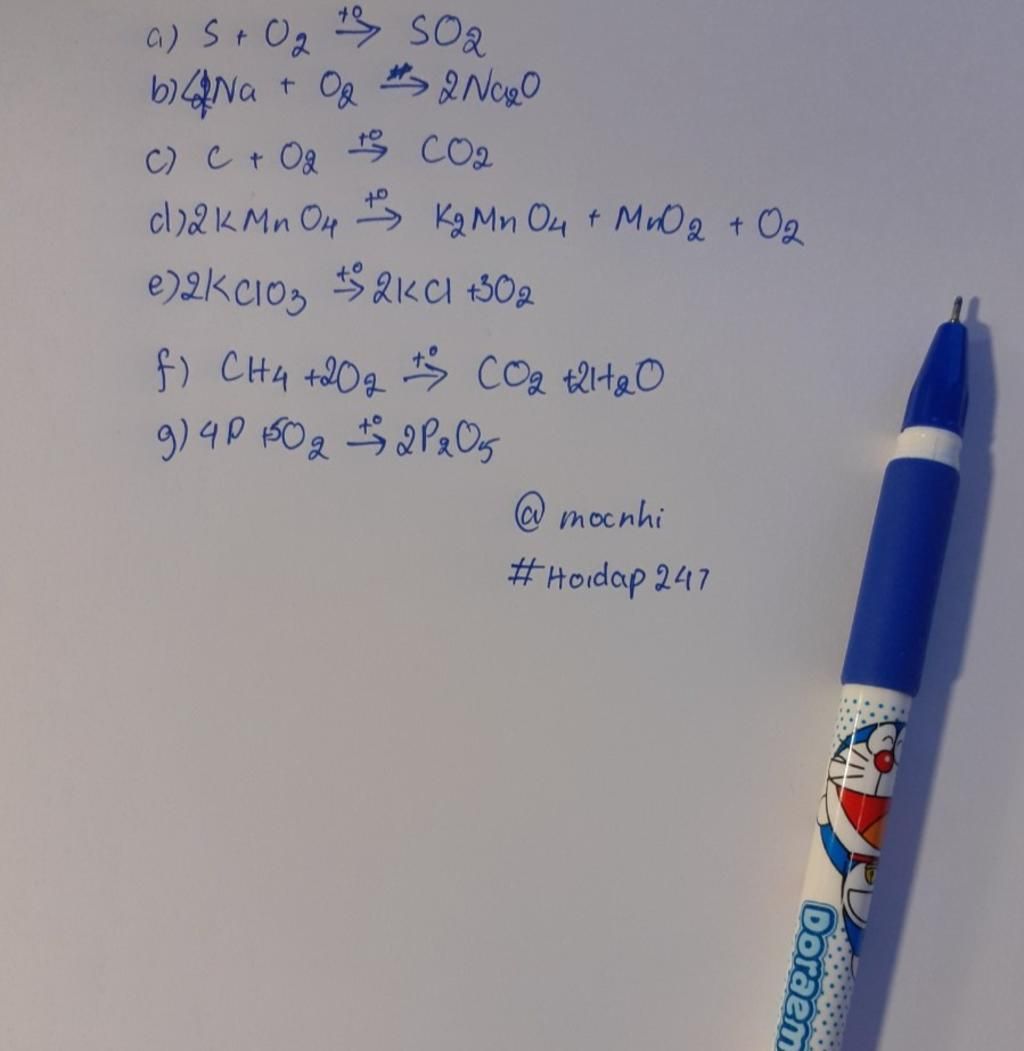 a) S + O₂ t⁰→ SO₂
b) 4Na + O₂ → 2Na₂O
c) C + O₂ t⁰→ CO₂
d) 2KMnO₄ t⁰→ K₂MnO₄ + MnO₂ + O₂
e) 2KClO₃ t⁰→ 2KCl + 3O₂
f) CH₄ + 2O₂ t⁰→ CO₂ + 2H₂O
g) 4P + 5O₂ t⁰→ 2P₂O₅
@ mocnhi
#Hoidap247
Doraem